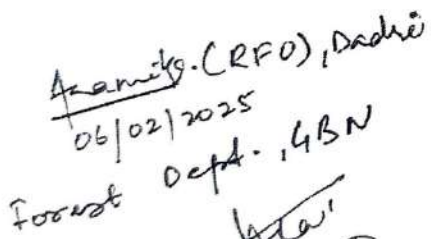 (RFO), Dadri
06/02/2025
Forest Dept., GBN